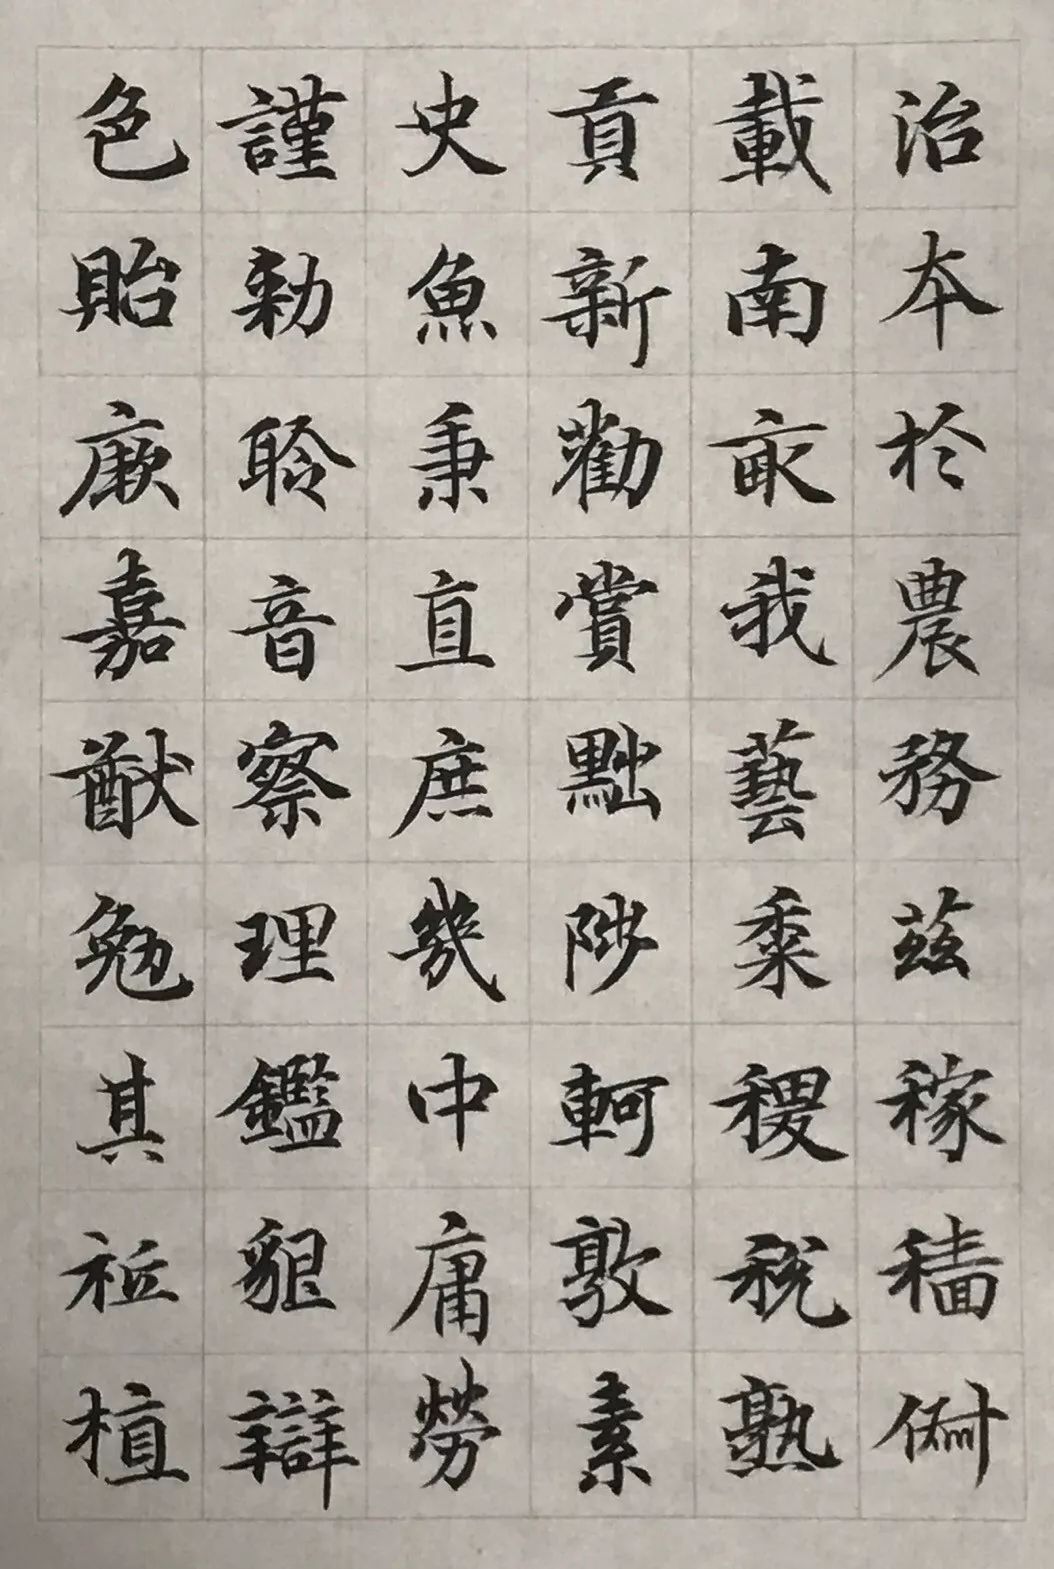 治本於農務茲稼穡俶
載南畝我藝黍稷稅熟
貢新勸賞黜陟軻敦素
史魚秉直庶幾中庸勞
謹勑聆音察理鑑貌辯
色貽厥嘉猷勉其祗植